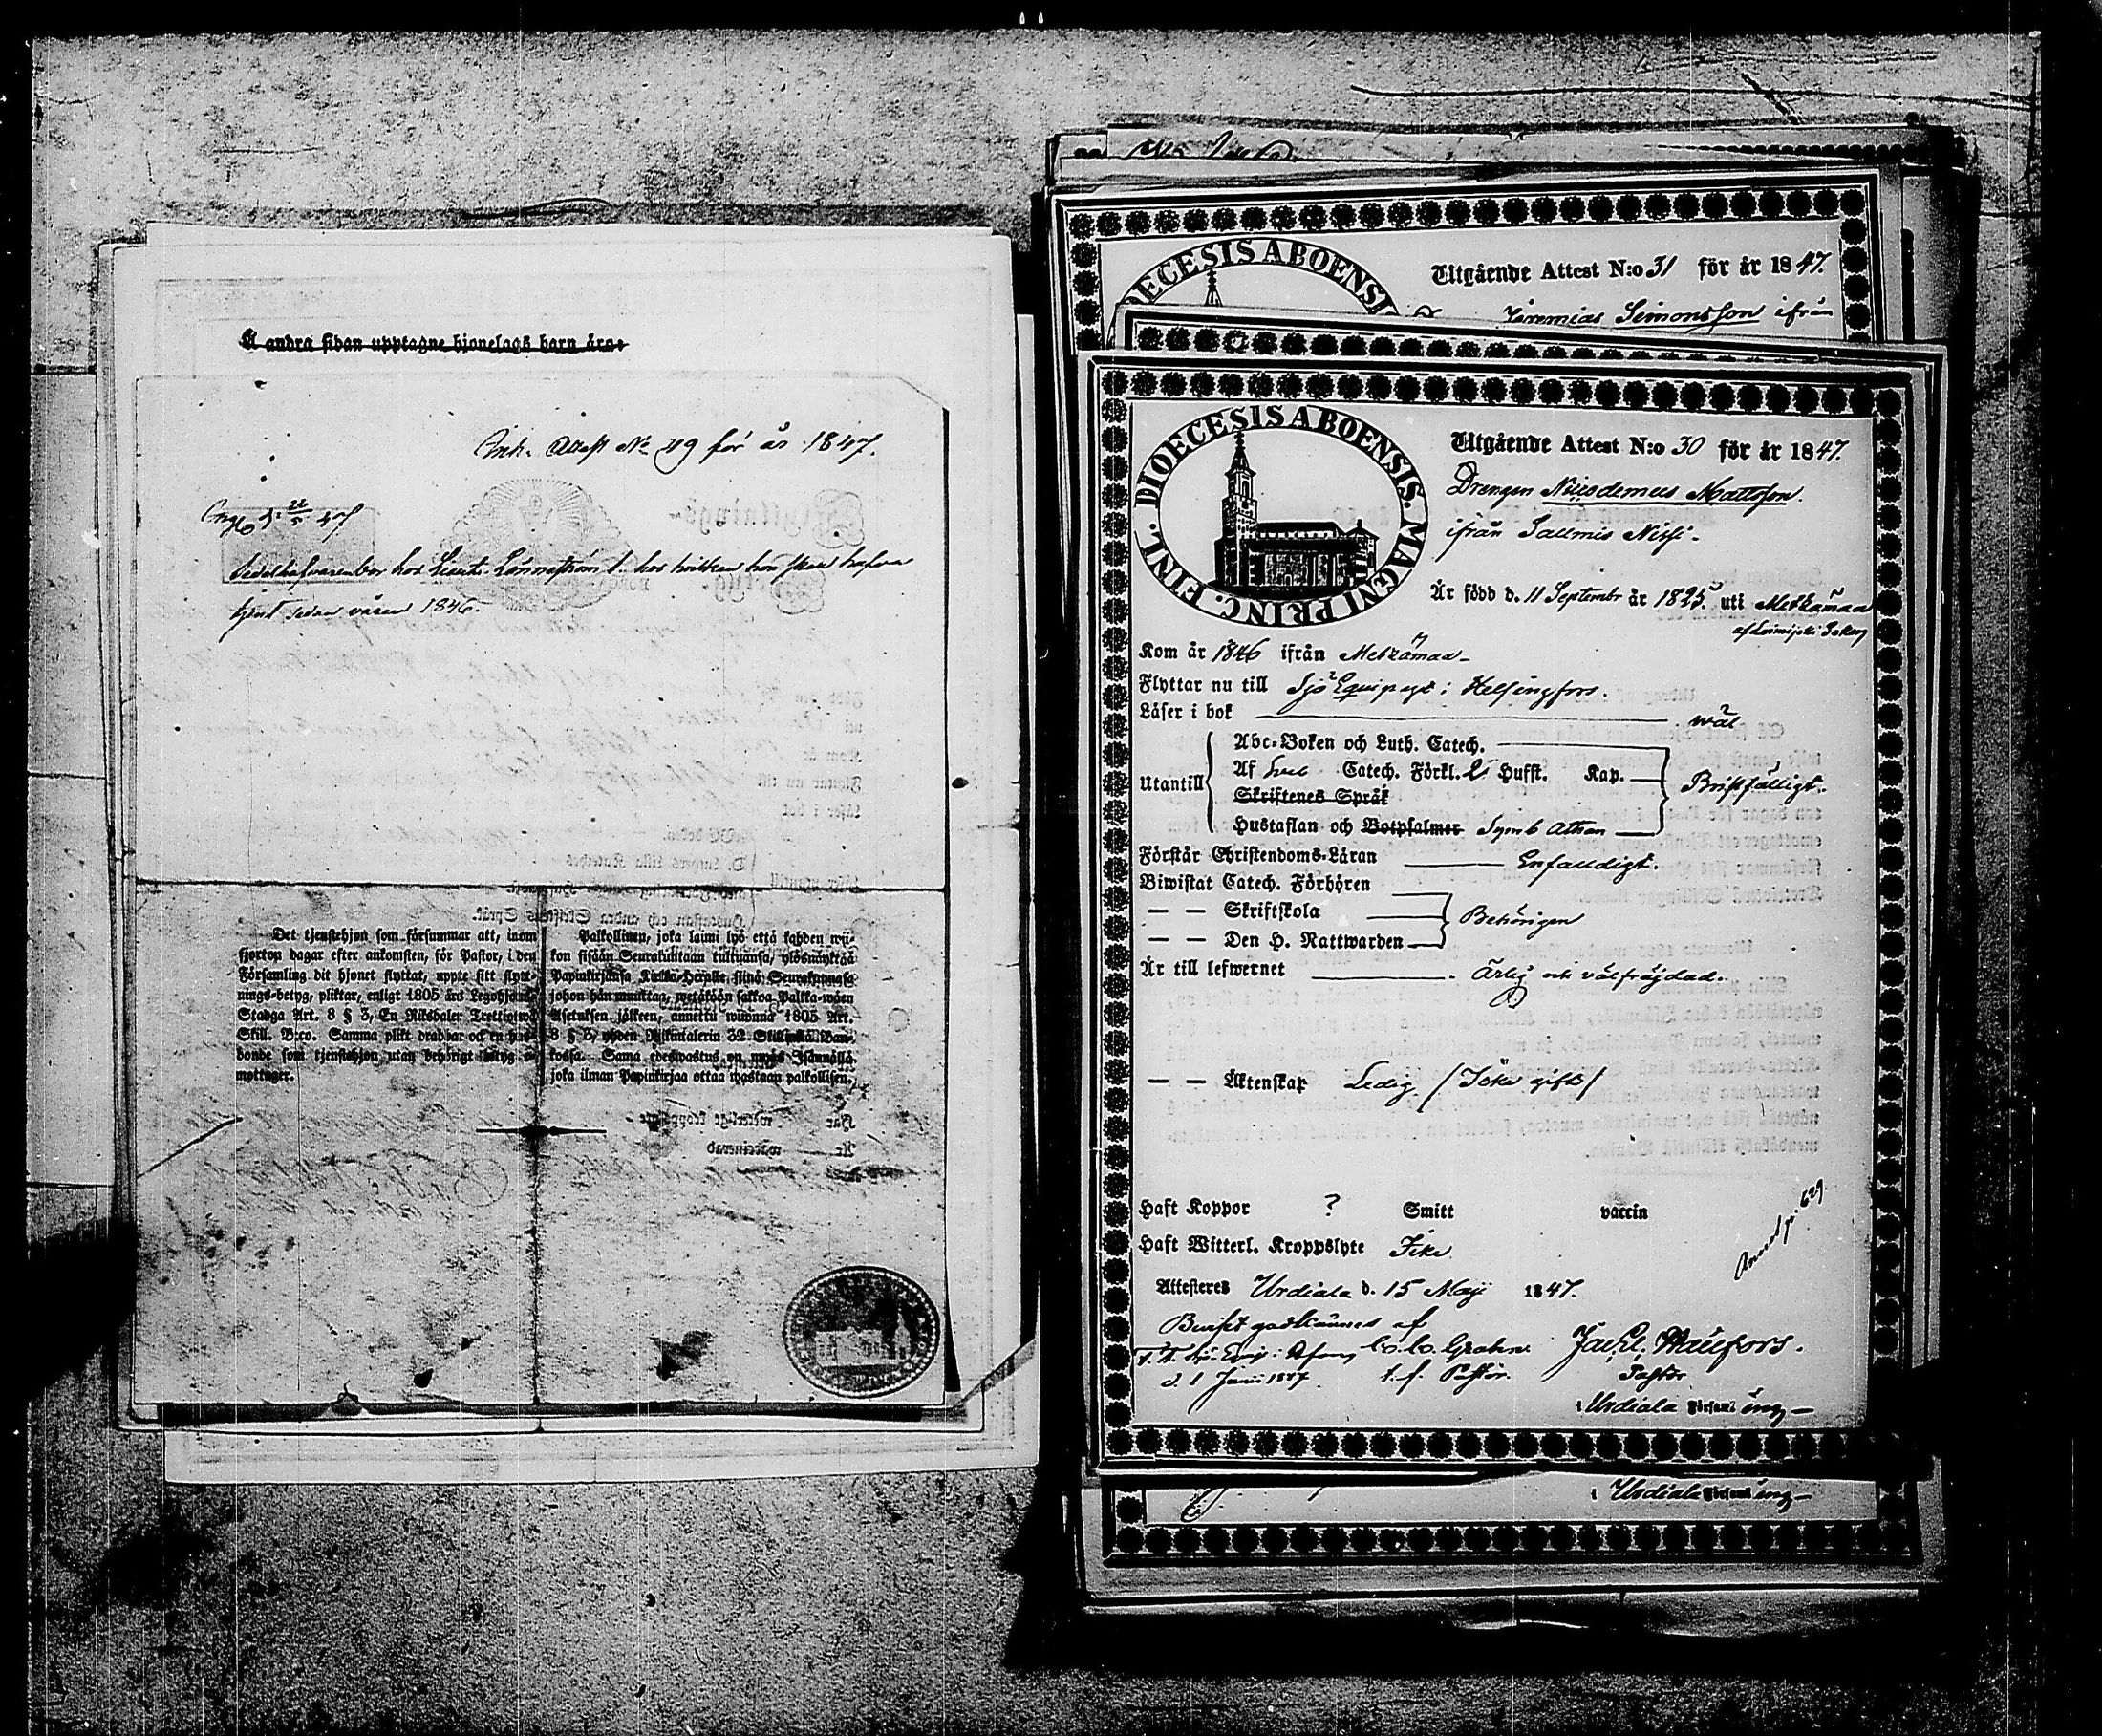 Å andra sidan upptagne hjonelags barn äro:
Ink. Attest No 49 för år 1847.
hos Lieut. Lönnström hos hvilken hon skall hafva
tjent sedan våren 1846.
Det tjenstehjon som försummar att, inom
fjorton dagar efter ankomsten, för Pastor, i den
Församling dit hjonet flyttat, uppte sitt flytt-
nings-betyg, pliktar, enligt 1805 års Legohjons
Stadga Art. 8 § 3, En Riksdaler Trettiotwå
Skill. B:co. Samma plikt drabbar ock en hus-
bonde som tjenstehjon utan behörigt betyg e-
mottager.
Palkollinen, joka laimi lyö että kahden wii-
kon sisään Seurakuntaan tultuansa, ylösnäyttää
Papinkirjansa Kirkko-Herralle siinä Seurakunnassa
johon hän muuttaa, wetäköön sakkoa Palkka-wäen
Asetuksen jälkeen, annettu wuonna 1805 Art.
8 § 3, yhden Riksintalerin 32 Skillinkiä Ban-
kossa. Sama edeswastus on myös Isännällä,
joka ilman Papinkirjaa ottaa wastaan palkollisen.
DIOECESIS ABOENSIS
Utgående Attest N:o 31 för år 1847.
Jeremias Simonsson ifrån
DIOECESIS ABOENSIS. MAGNI PRINC. FINL.
Utgående Attest N:o 30 för år 1847.
Drengen Nicodemus Mattsson.
ifrån Salmis Nissi
Är född d. 11 Septembr år 1825. uti Metzämaa
Kom år 1846 ifrån Metzämaa
Flyttar nu till Sjö Equipaget i Helsingfors.
Läser i bok wäl
Utantill
Abc-Boken och Luth. Catech.
Af Catech. Förkl. Hufst. Kap.
Bristfälligt.
Skriftenes Språk
Hustaflan och Botpsalmer Symb Athan
Förstår Christendoms-Läran Enfaldigt.
Biwistat Catech. Förhören
— — Skriftskola
Behörigen
— — Den H. Nattwarden
Är till lefwernet Ärlig och välfräjdad.
— — Äktenskap Ledig (Icke gift)
Haft Koppor ? Smitt vaccin
Haft Witterl. Kroppslyte Icke
Attesteres Urdiala d. 15 Maji 1847.
Betyget godkännes af
C. C. Grahn
d. 1 Junii 1847 t. f. Pastor.
Pastor
i Urdiala Församling
i Urdiala Församling